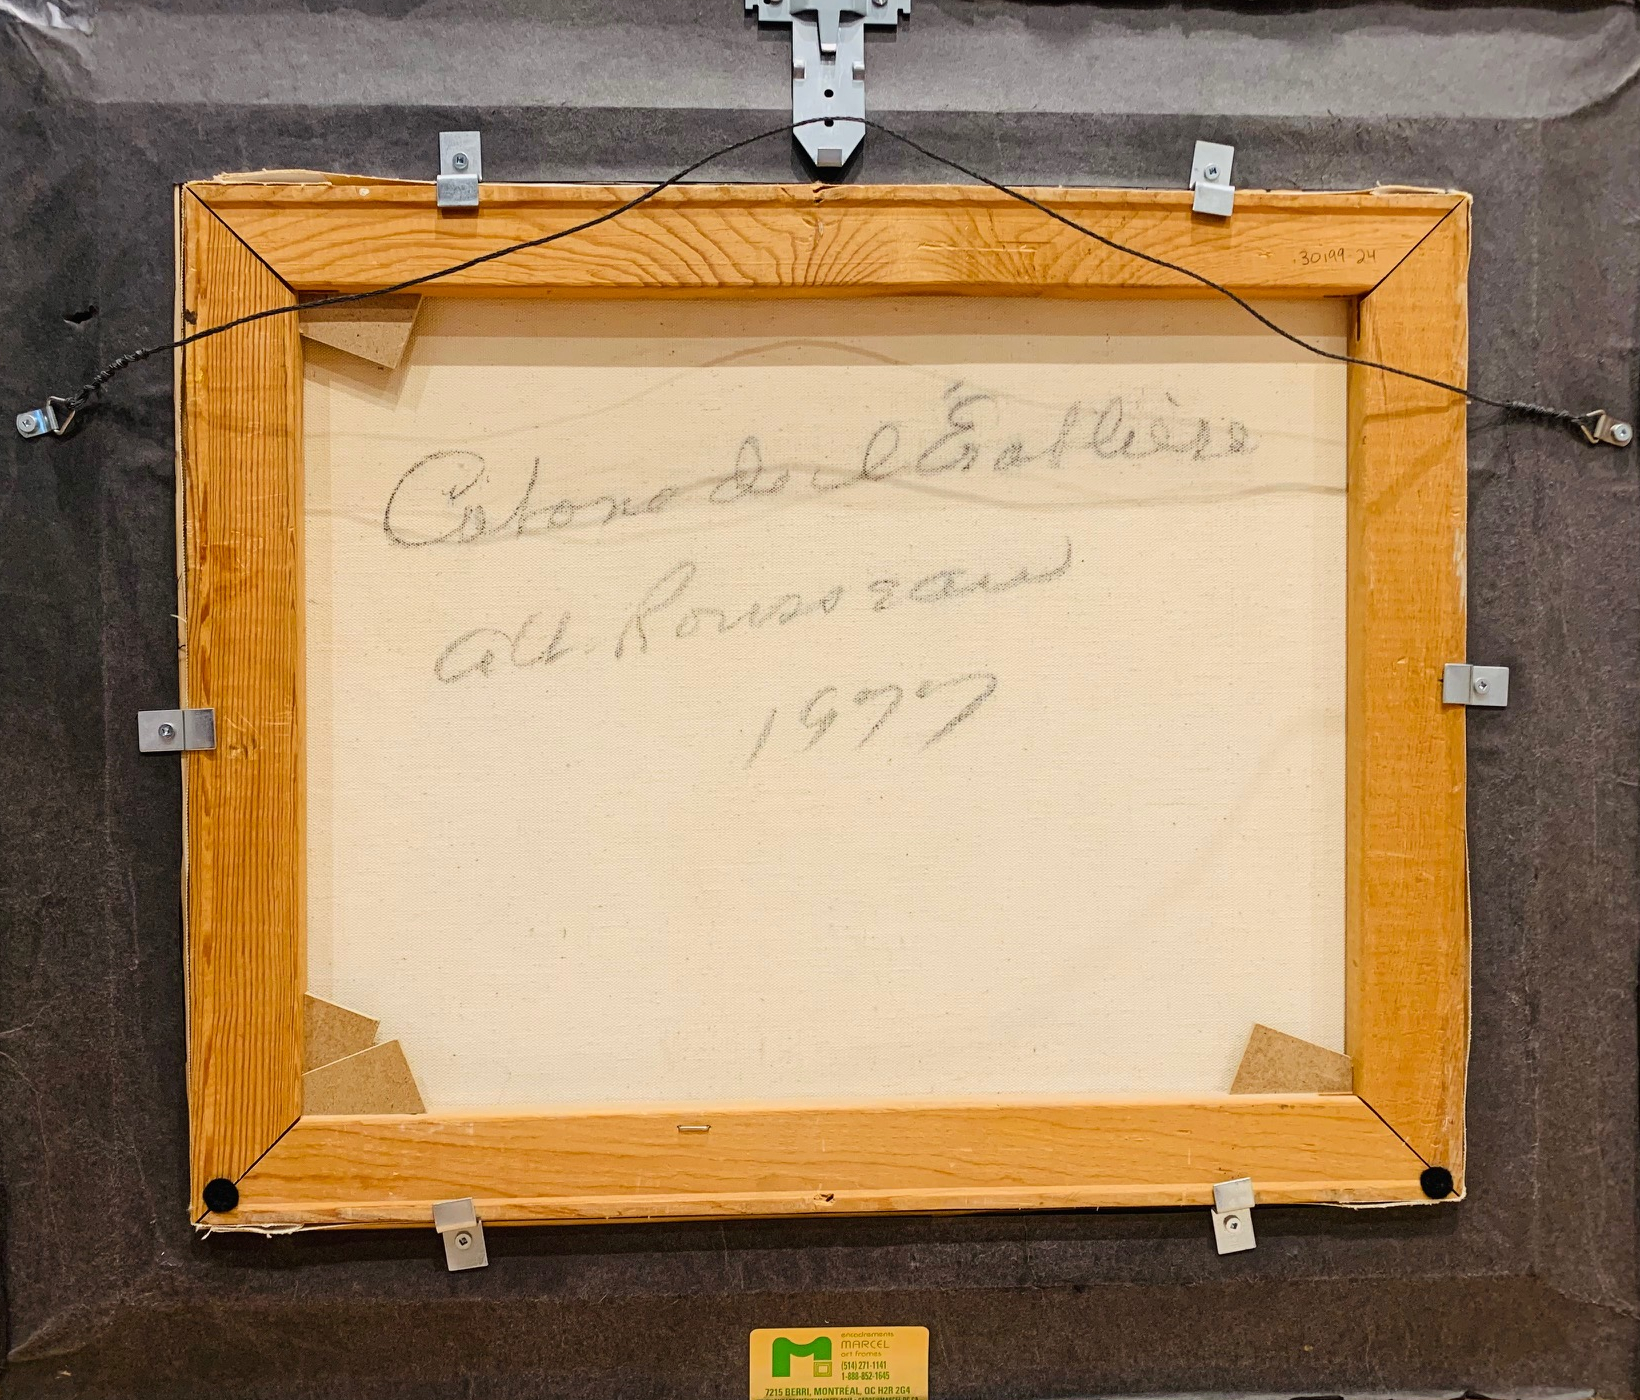 30199-24
Cabane de l'Érablière
Alb. Rousseau
1977
encadrements
MARCEL
art frames
(514) 271-1141
1-888-852-1645
7215 BERRI, MONTRÉAL, QC H2R 2G4